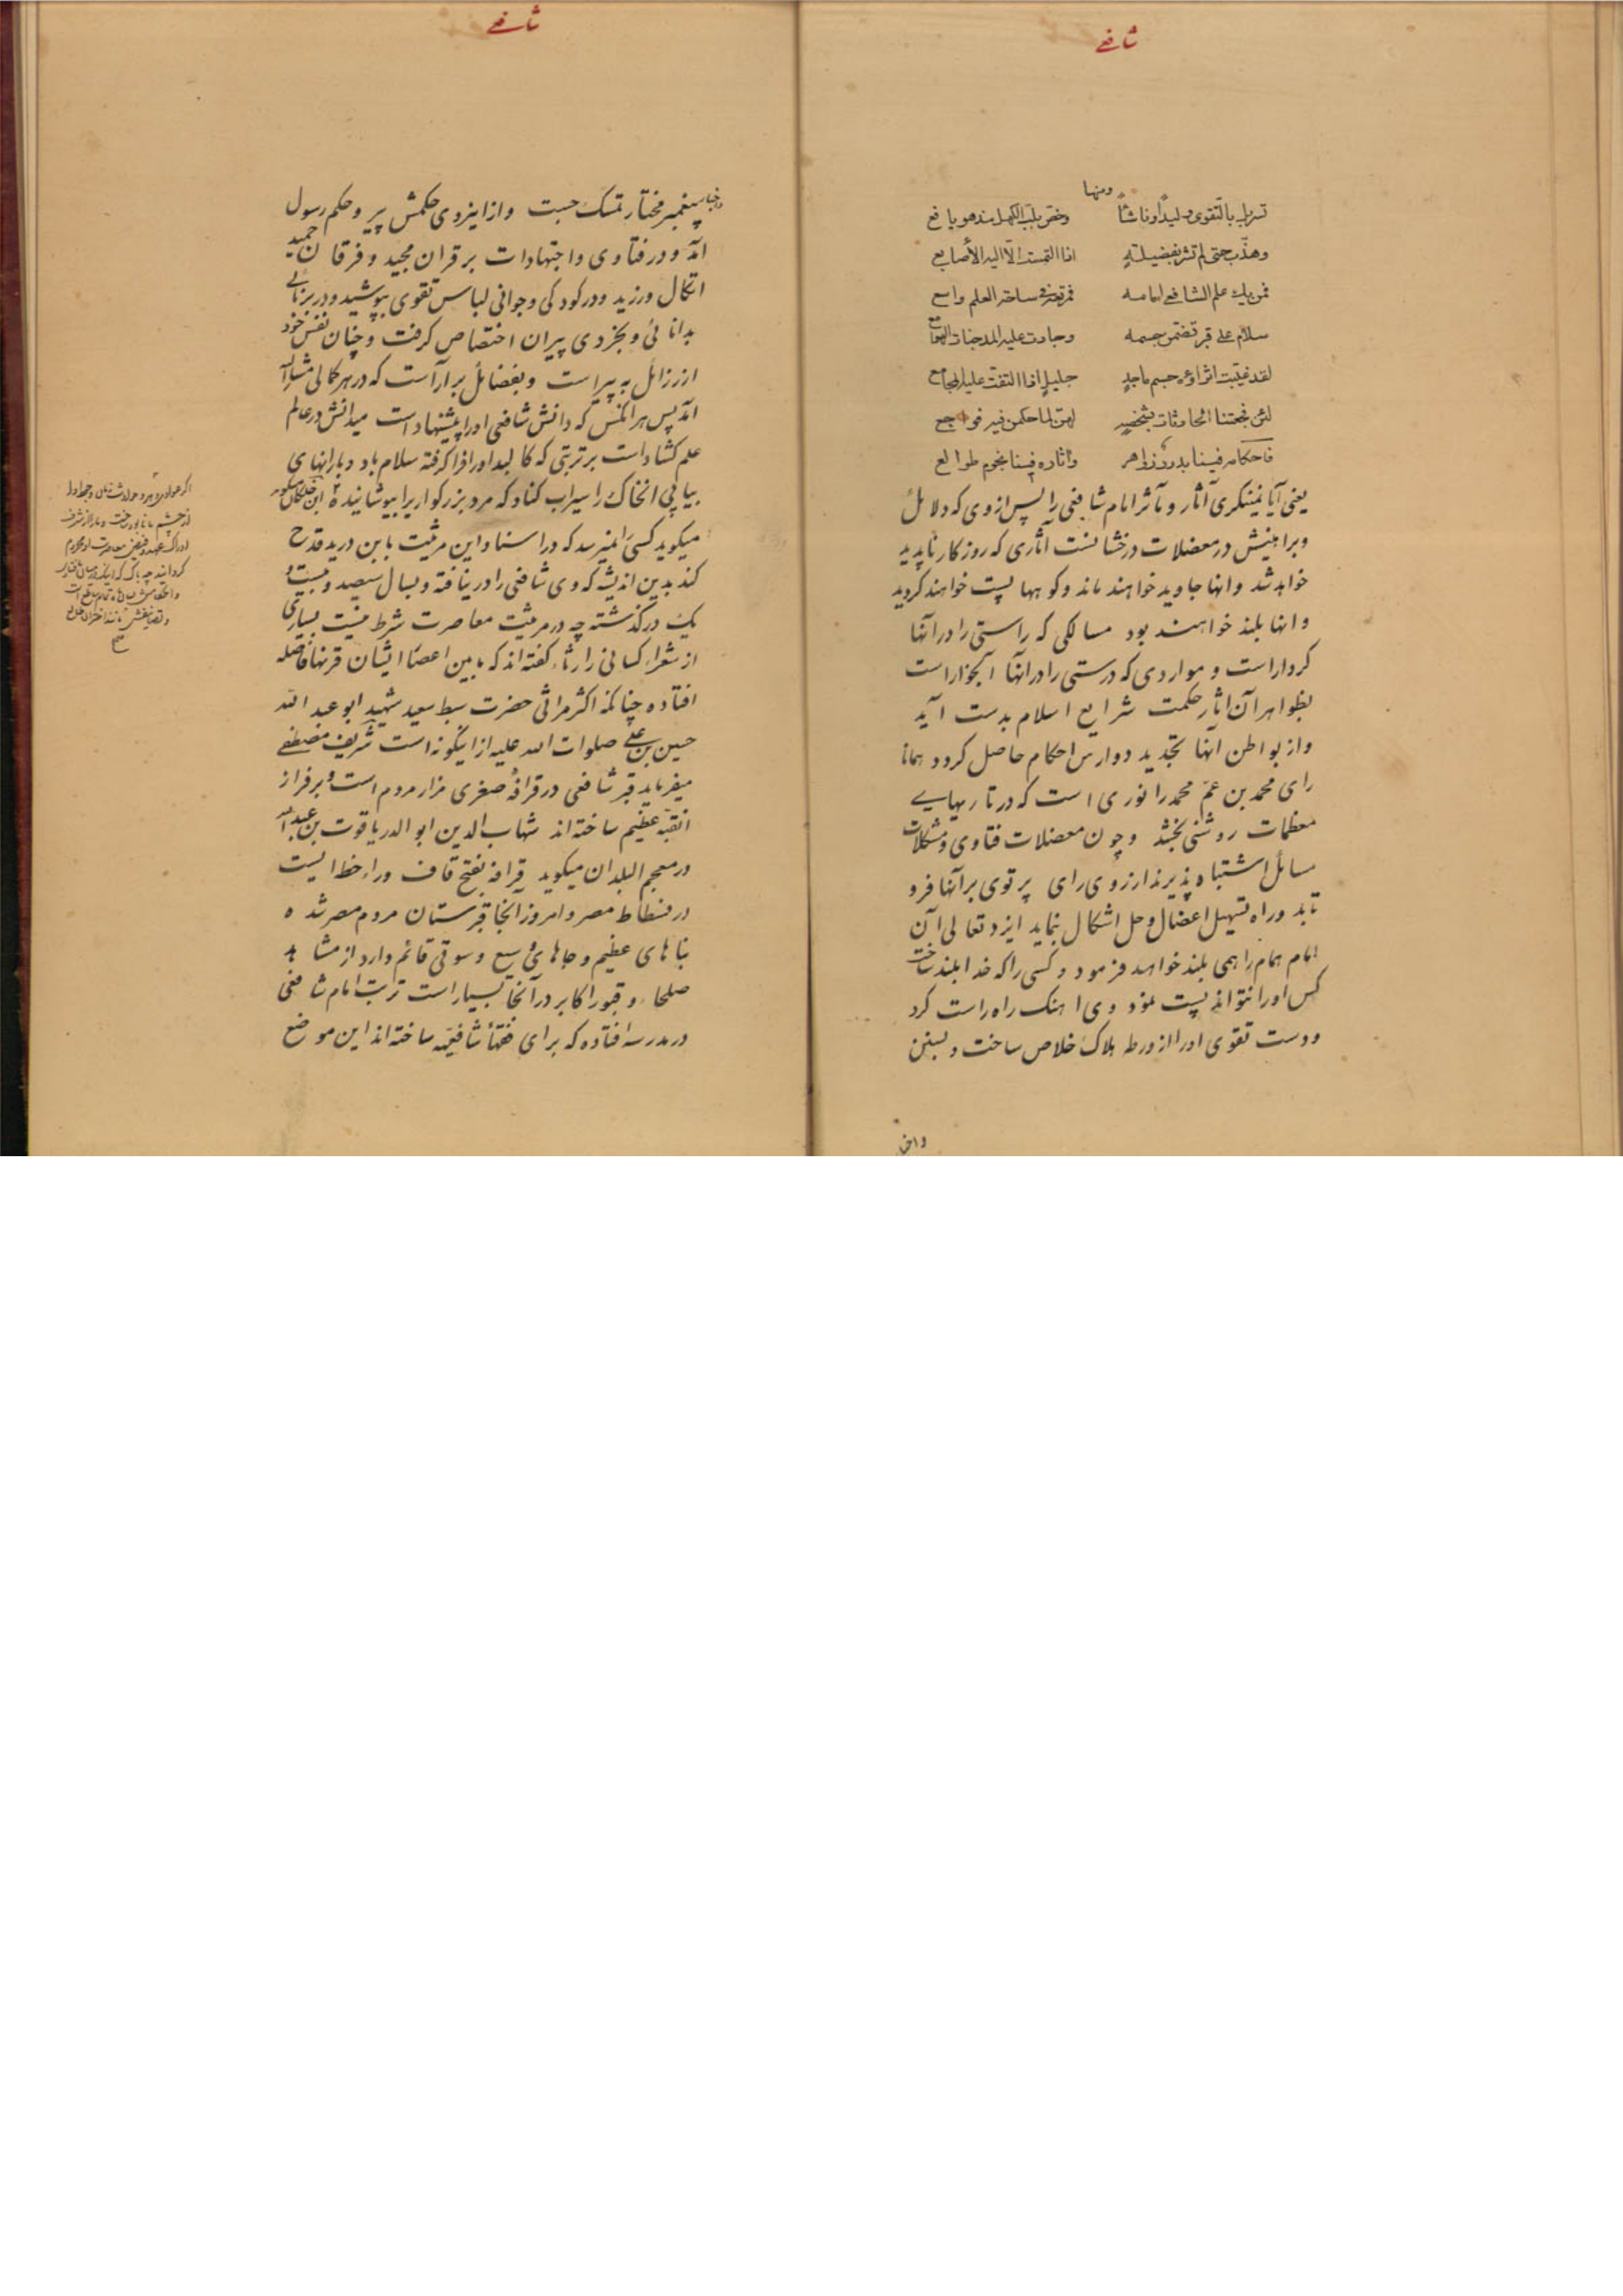 شافعی
ومنها
تسربل بالتّقوی ولیداً وناشئاً وخصّ بلبّ الکهل مذ هو یافع
وهذّب حتی لم تشر بفضیلةٍ اذا التمست الّا الیه الأصابع
فمن یک علم الشافعی امامه فمرتعه فی ساحة العلم واسع
سلام علی قبر تضمن جسمه وجادت علیه المدجنات الهوامع
لقد غیّبت اثراؤه جسم ماجدٍ جلیلٍ اذا التفّت علیه المجامع
لئن فجعتنا الحادثات بشخصهٍ لهنّ لما حکمن فیه فواجع
فاحکامه فینا بدور زواهر وآثاره فینا نجوم طوالع
یعنی آیا نمینگری آثار و مآثر امام شافعی را پس از وی که دلائل
وبراهینش در معضلات درخشانست آثاری که روزکار ناپدید
خواهد شد وانها جاوید خواهند ماند وکوهها پست خواهند کردید
وانها بلند خواهند بود مسالکی که راستی را در آنها
کردار است و مواردی که درستی را در انها آبخوار است
بظواهر آن اثار حکمت شرایع اسلام بدست آید
واز بواطن آنها تجدید دوارس احکام حاصل کردد همانا
رای محمد بن عم محمد را نوری است که در تاریهایی
معظمات روشنی بخشد وچون معضلات فتاوی ومشکلات
مسائل اشتباه پذیرند از روی رای پرتوی بر آنها فرو
تابد وراه تسهیل اعضال وحل اشکال نماید ایزد تعالی آن
امام همام را همی بلند خواهد فرمود وکسی را که خدا بلند ساخت
کس او را نتواند پست نمود وی اهنک راه راست کرد
ودست تقوی او را از ورطه هلاک خلاص ساخت وبسنن
شافعی
پیغمبر مختار تمسک جست واز اینروی حکمش پیرو حکم رسول
آمد ودر فتاوی واجتهادات بر قران مجید وفرقان حمید
اتکال ورزید ودر کودکی وجوانی لباس تقوی بپوشید ودر برنایی
بدانائی وبخردی پیران اختصاص کرفت وچنان نفس خود
از رزائل به پیراست وبفضائل برآراست که در هر کمالی مشارالیه
آمد پس هر انکس که دانش شافعی او را پیشنهاد است میدانش در عالم
علم کشاد است بر تربتی که کالبد او را فرا کرفته سلام باد وبارانهای
پیاپی انخاک را سیراب کناد که مرد بزرکواریرا بپوشانیده ابن خلکان
میکوید کسی را نمیرسد که در اسناد این مرثیت بابن درید قدح
کند بدین اندیشه که وی شافعی را درنیافته وبسال سیصد وبیست و
یک در کذشته چه در مرثیت معاصرت شرط نیست بسیاری
از شعراء کسانی را رثاء کفته اند که مابین اعصار ایشان قرنها فاصله
افتاده چنانکه اکثر مراثی حضرت سبط سعید شهید ابو عبد الله
حسین بن علی صلوات الله علیه از اینکونه است شریف مصطفی
میفرماید قبر شافعی در قرافهٔ صغری مزار مردم است وبر فراز
انقبّه عظیم ساخته اند شهاب الدین ابو الدر یاقوت بن عبدالله
در معجم البلدان میکوید قرافه بفتح قاف وراء خطه ایست
در فسطاط مصر وامروز آنجا قبرستان مردم مصر شده
بناهای عظیم وجاهای وسیع وسوقی قائم دارد از مشاهد
صلحاء وقبور اکابر در آنجا بسیار است تربت امام شافعی
در مدرسه افتاده که برای فقهاء شافعیّه ساخته اند این موضع